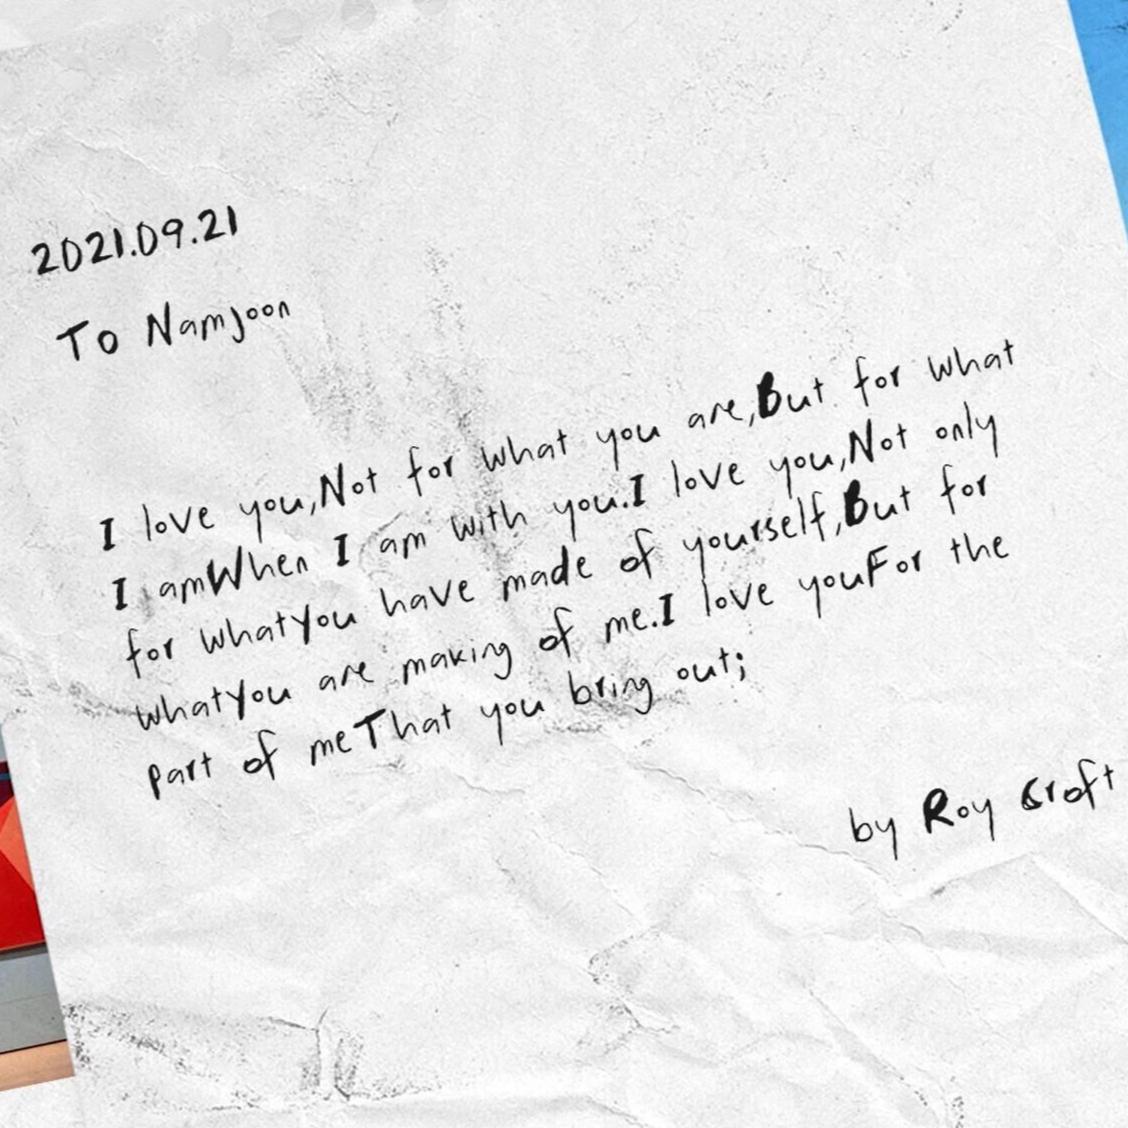 2021.09.21
To Namjoon
I love you,Not for what you are,But for what
I amWhen I am with you.I love you,Not only
for whatYou have made of yourself,But for
whatYou are making of me.I love youFor the
part of meThat you bring out;
by Roy Croft